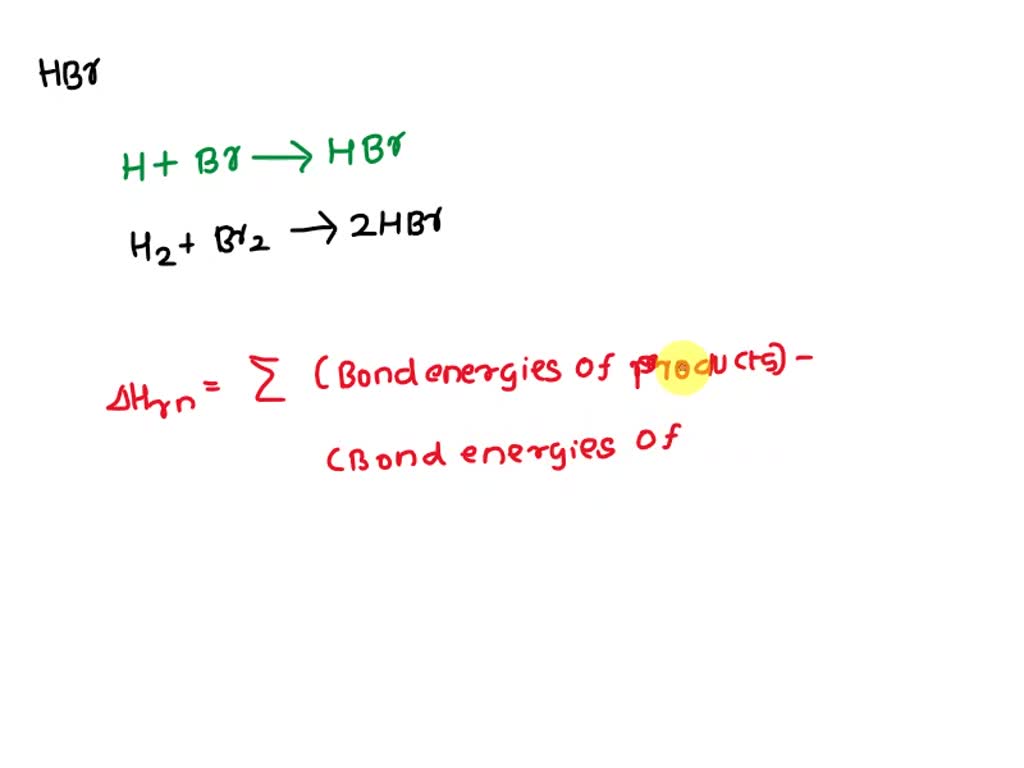 HBr
H + Br → HBr
H2 + Br2 → 2HBr
ΔHrn = Σ (Bond energies of products) –
(Bond energies of